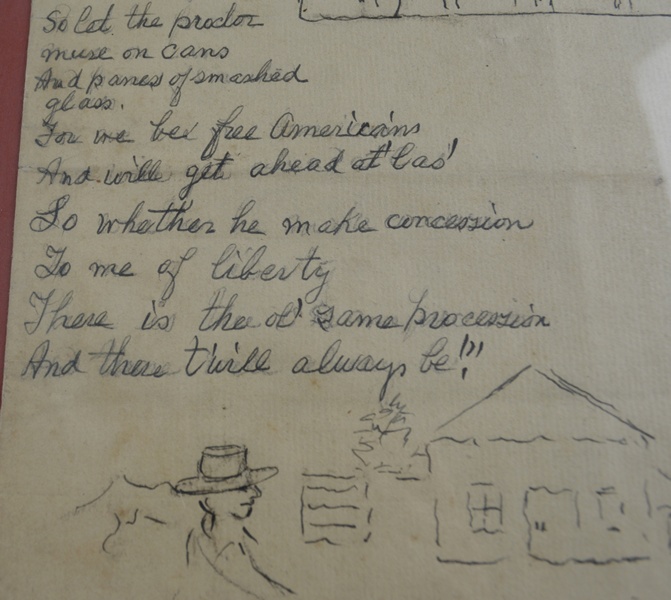 So let the proctor
muse on cans
And panes of smashed
glass.
For we be free Americans
And will get ahead at' las'
So whether he make concession
To me of liberty
There is the ol' same procession
And there t'will always be!"